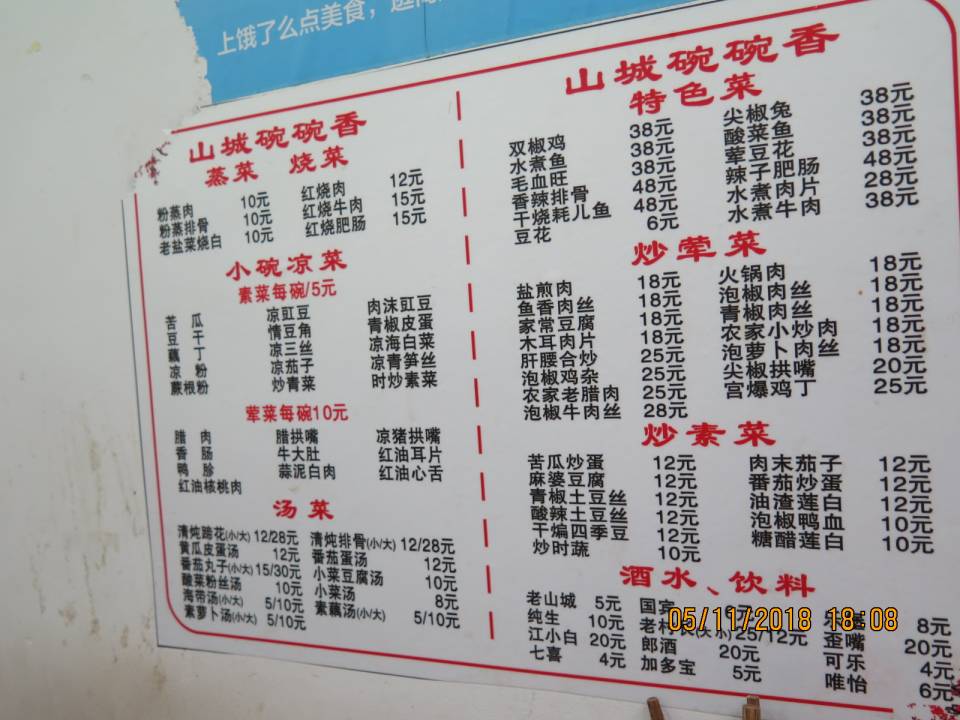 上饿了么点美食，
山城碗碗香
蒸菜 烧菜
粉蒸肉 10元 红烧肉 12元
粉蒸排骨 10元 红烧牛肉 15元
老盐菜烧白 10元 红烧肥肠 15元
小碗凉菜
素菜每碗/5元
苦瓜 凉豇豆 肉沫豇豆
豆干 情豆角 青椒皮蛋
藕丁 凉三丝 凉海白菜
凉粉 凉茄子 凉青笋丝
蕨根粉 炒青菜 时炒素菜
荤菜每碗10元
腊肉 腊拱嘴 凉猪拱嘴
香肠 牛大肚 红油耳片
鸭胗 蒜泥白肉 红油心舌
红油核桃肉
汤菜
清炖蹄花(小/大) 12/28元 清炖排骨(小/大) 12/28元
黄瓜皮蛋汤 12元 番茄蛋汤 10元
番茄丸子(小/大) 15/30元 小菜豆腐汤 10元
酸菜粉丝汤 10元 小菜汤 8元
海带汤(小/大) 5/10元 素藕汤(小/大) 5/10元
素萝卜汤(小/大) 5/10元
山城碗碗香
特色菜
双椒鸡 38元 尖椒兔 38元
水煮鱼 38元 酸菜鱼 38元
毛血旺 38元 荤豆花 38元
香辣排骨 48元 辣子肥肠 48元
干烧耗儿鱼 48元 水煮肉片 28元
豆花 6元 水煮牛肉 38元
炒荤菜
盐煎肉 18元 火锅肉 18元
鱼香肉丝 18元 泡椒肉丝 18元
家常豆腐 18元 青椒肉丝 18元
木耳肉片 18元 农家小炒肉 18元
肝腰合炒 25元 泡萝卜肉丝 18元
泡椒鸡杂 25元 尖椒拱嘴 20元
农家老腊肉 25元 宫爆鸡丁 25元
泡椒牛肉丝 28元
炒素菜
苦瓜炒蛋 12元 肉末茄子 12元
麻婆豆腐 12元 番茄炒蛋 12元
青椒土豆丝 12元 油渣莲白 12元
酸辣土豆丝 12元 泡椒鸭血 10元
干煸四季豆 12元 糖醋莲白 10元
炒时蔬 10元
酒水、饮料
老山城 5元 国宾 8元
纯生 10元 老村长(大小) 25/12元 歪嘴 20元
江小白 20元 郎酒 20元 可乐 4元
七喜 4元 加多宝 5元 唯怡 6元
05/11/2018 18:08